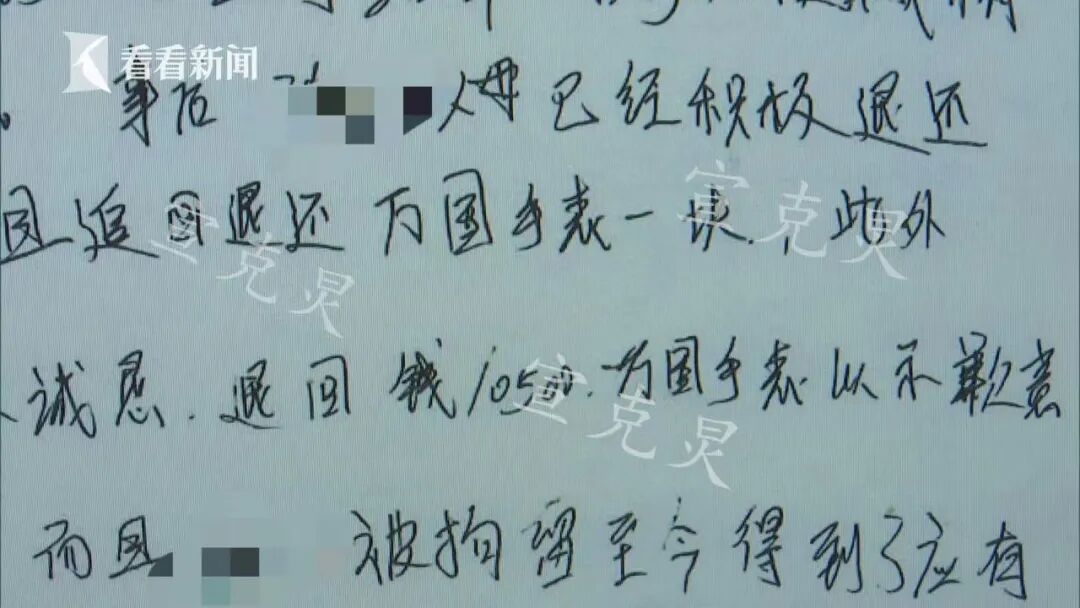 看看新闻
事后 父母已经积极退还
追回退还 万国手表一块,此外
诚恳.退回 钱10500.万国手表以示歉意
而且 被拘留至今得到了应有
宣克炅
宣克炅
宣克炅